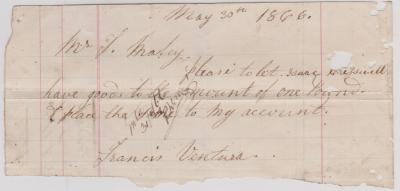 May 30th 1866.
Mr F. Maley
Please to let Isaac
have goods to the amount of one Pound
& place the same to My account.
Francis Ventura.